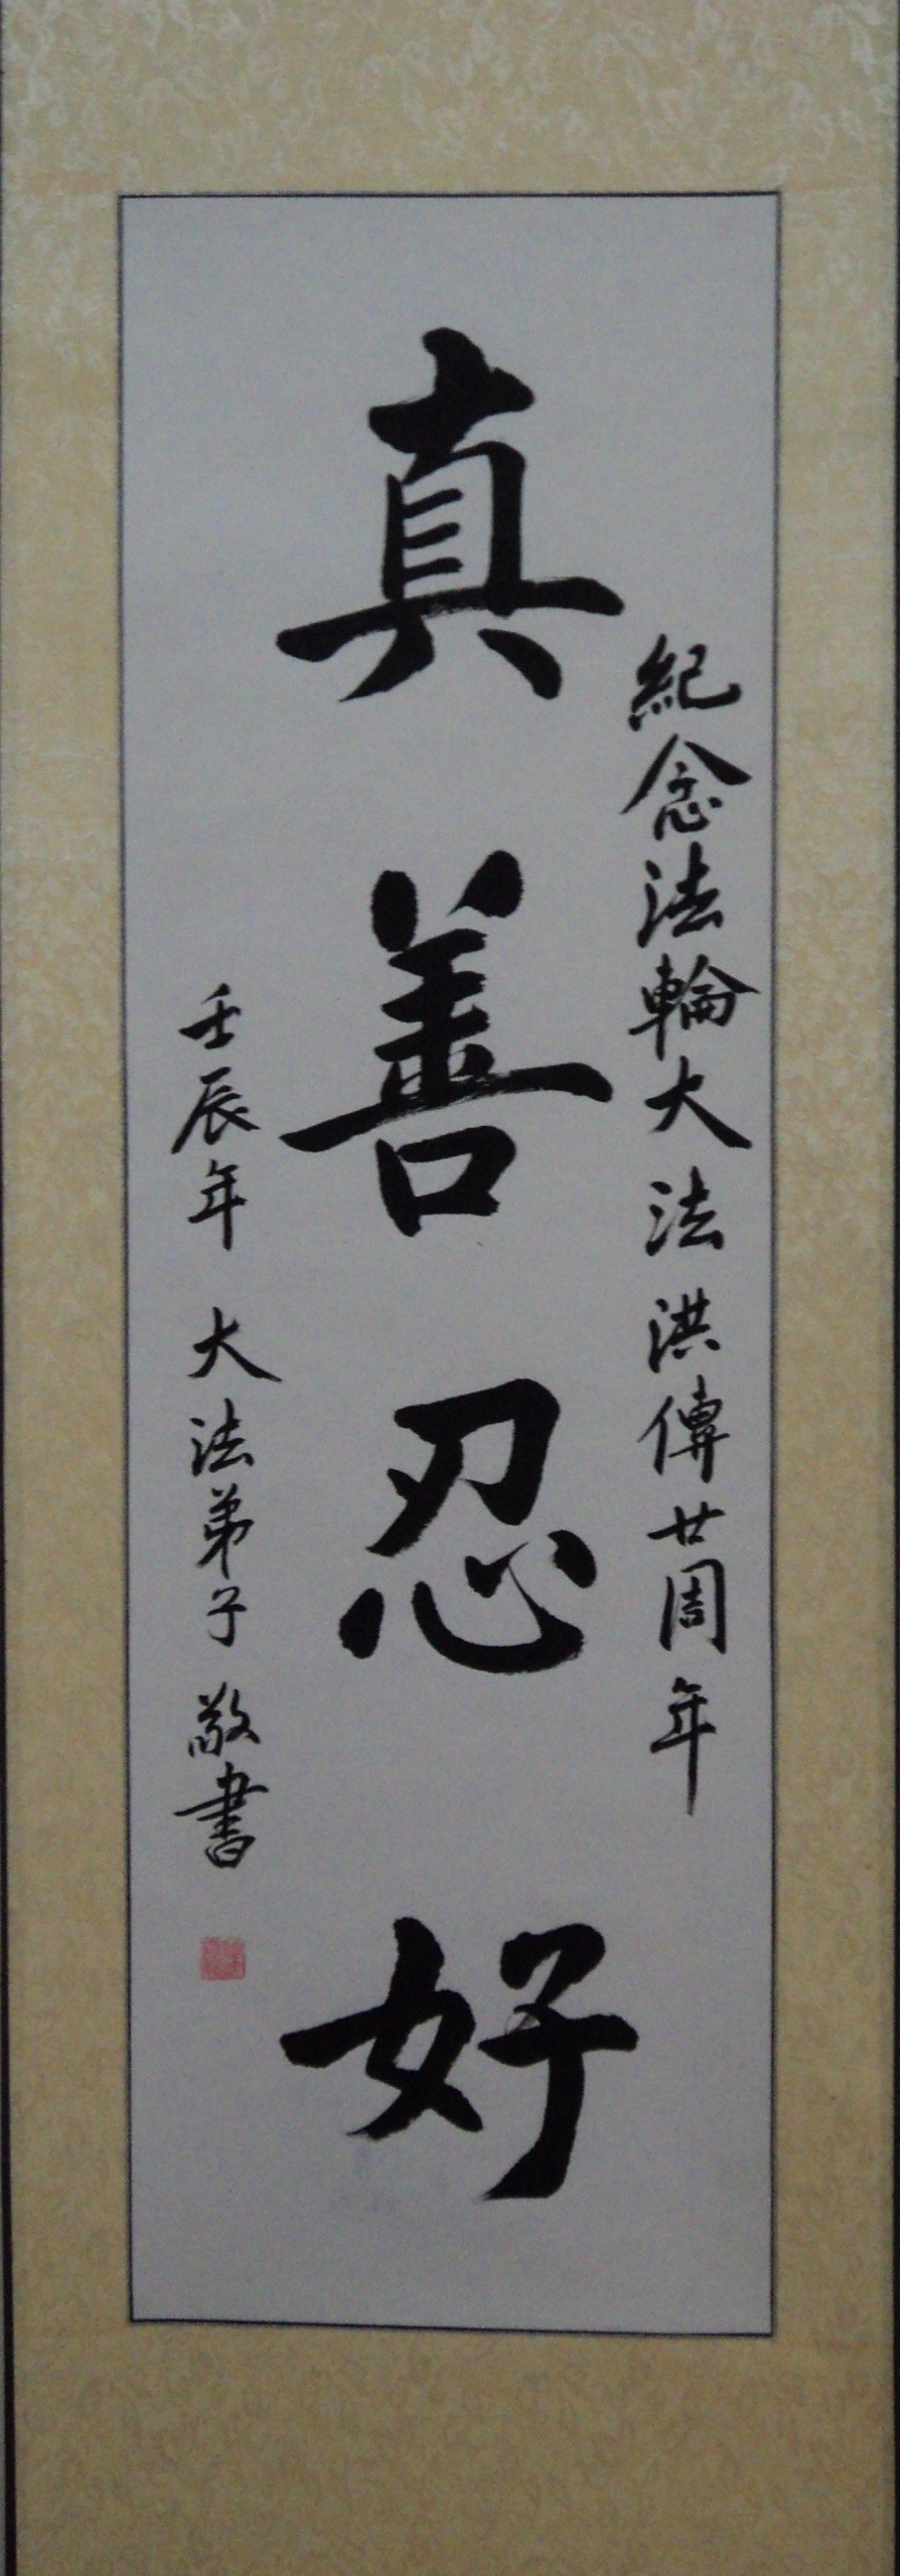 紀念法輪大法洪傳廿周年
真善忍好
壬辰年 大法弟子 敬書